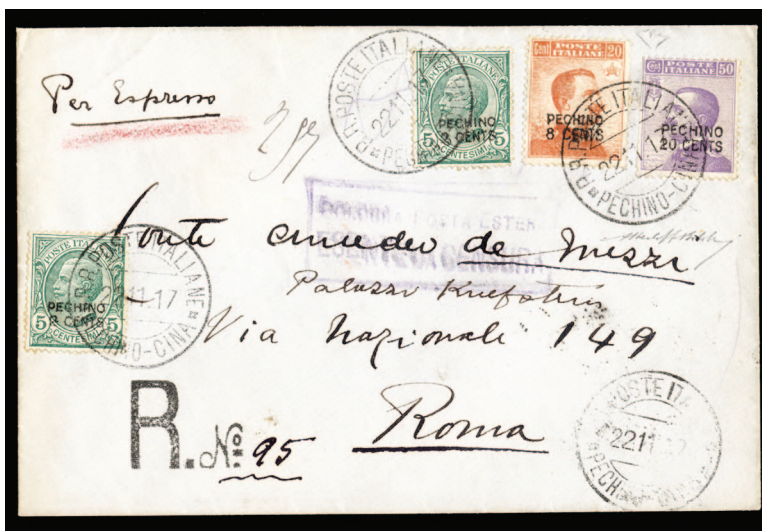 Per Espresso
R.R. POSTE ITALIANE
22.11.17
PECHINO-CINA
POSTE ITALIANE
PECHINO
2 CENTS
5 CENTESIMI 5
Cent POSTE ITALIANE 20
PECHINO
8 CENTS
POSTE ITALIANE 50
PECHINO
20 CENTS
R.R. POSTE ITALIANE
22.11.17
PECHINO-CINA
BOLOGNA POSTA ESTERA
ESENTE DA CENSURA
Conte Amedeo de
Palazzo
Via Nazionale 149
Roma
POSTE ITALIANE
PECHINO
2 CENTS
5 CENTESIMI 5
R.R. POSTE ITALIANE
22.11.17
PECHINO-CINA
R. No: 95
POSTE ITA
22 11 17
PECHINO-CINA